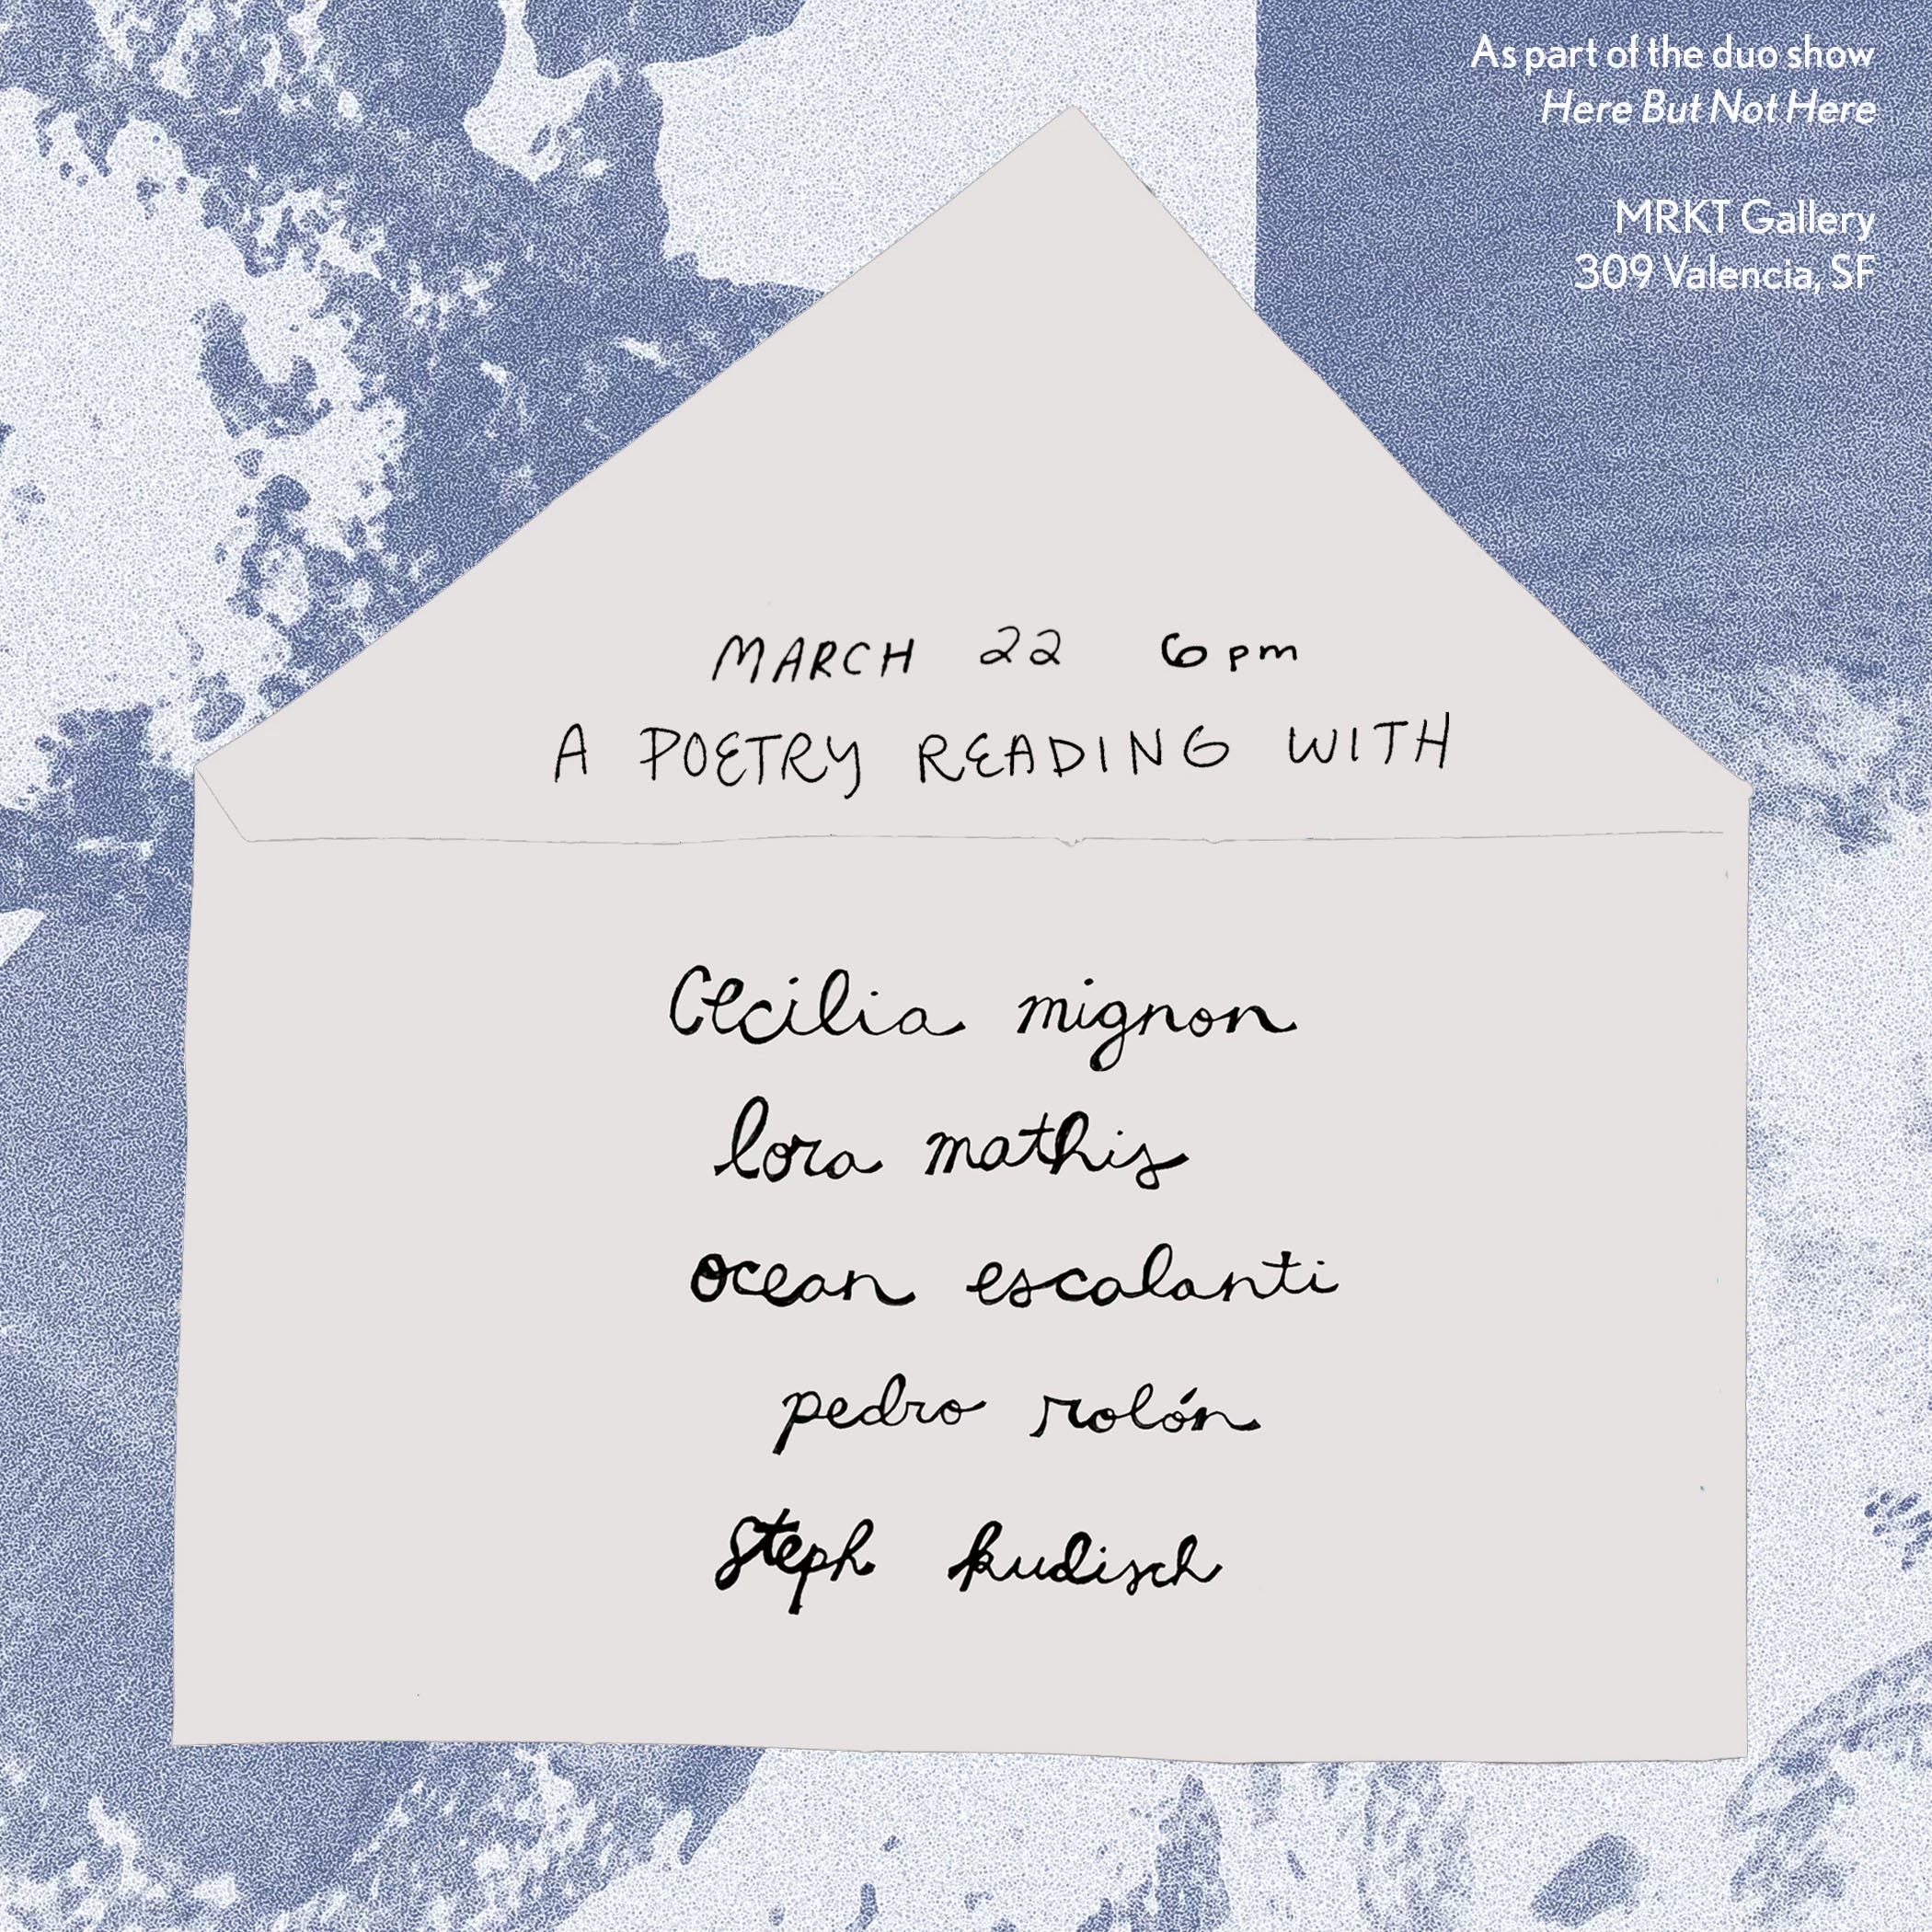 As part of the duo show
Here But Not Here
MRKT Gallery
309 Valencia, SF
MARCH 22 6pm
A POETRY READING WITH
Cecilia mignon
lora mathis
ocean escalanti
pedro rolón
steph kudisch